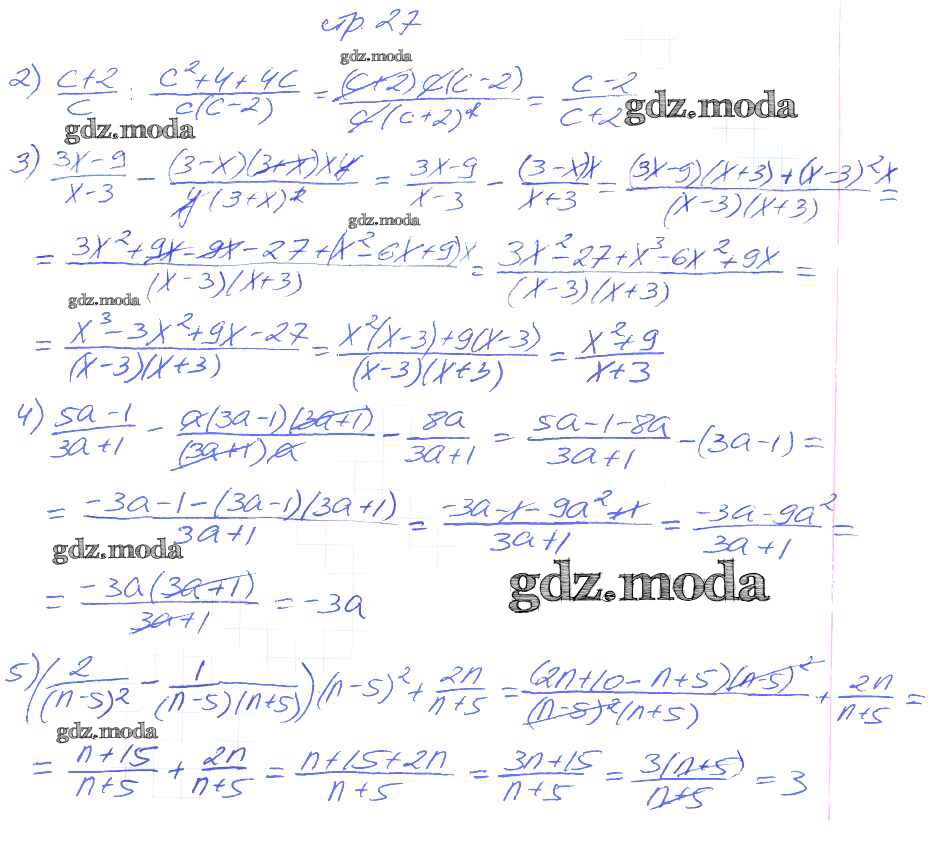 стр. 27
gdz.moda
2) (c+2)/c : (c²+4+4c)/(c(c-2)) = ((c+2)c(c-2))/(c(c+2)²) = (c-2)/(c+2)
gdz.moda
gdz.moda
3) (3x-9)/(x-3) - ((3-x)(3+x)xy)/(y(3+x)²) = (3x-9)/(x-3) - ((3-x)x)/(x+3) = ((3x-9)(x+3)+(x-3)²x)/((x-3)(x+3)) =
gdz.moda
= (3x²+9x-9x-27+(x²-6x+9)x)/((x-3)(x+3)) = (3x²-27+x³-6x²+9x)/((x-3)(x+3)) =
gdz.moda
= (x³-3x²+9x-27)/((x-3)(x+3)) = (x²(x-3)+9(x-3))/((x-3)(x+3)) = (x²+9)/(x+3)
4) (5a-1)/(3a+1) - (a(3a-1)(3a+1))/((3a+1)a) - 8a/(3a+1) = (5a-1-8a)/(3a+1) - (3a-1) =
= (-3a-1-(3a-1)(3a+1))/(3a+1) = (-3a-1-9a²+1)/(3a+1) = (-3a-9a²)/(3a+1) =
gdz.moda
gdz.moda
= (-3a(3a+1))/(3a+1) = -3a
5) (2/((n-5)²) - 1/((n-5)(n+5)))(n-5)² + 2n/(n+5) = ((2n+10-n+5)(n-5)²)/((n-5)²(n+5)) + 2n/(n+5) =
gdz.moda
= (n+15)/(n+5) + 2n/(n+5) = (n+15+2n)/(n+5) = (3n+15)/(n+5) = (3(n+5))/(n+5) = 3